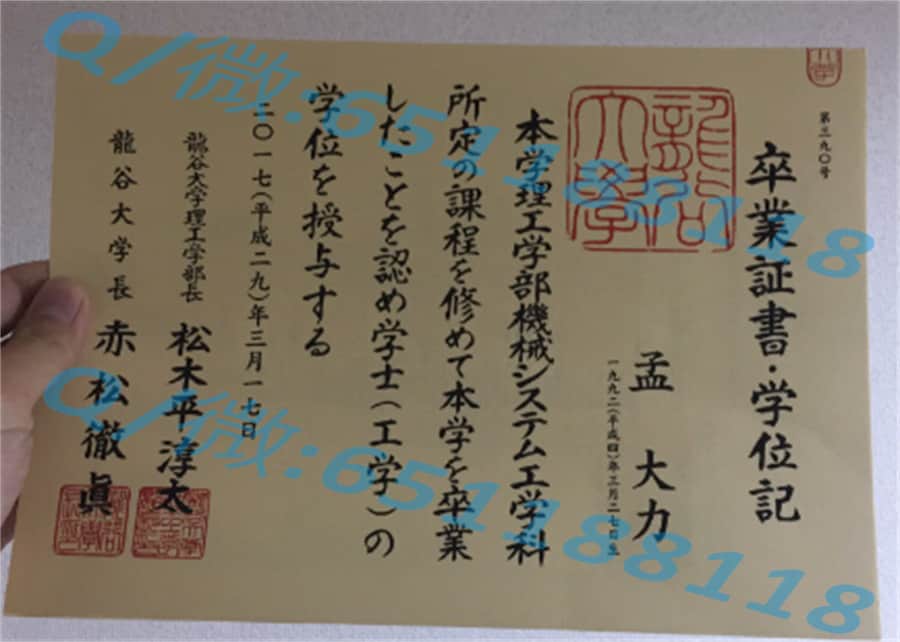 卒業証書・学位記
第三九〇号
龍谷大學
孟大力
一九九二(平成四)年三月二七日生
本学理工学部機械システム工学科
所定の課程を修めて本学を卒業
したことを認め学士(工学)の
学位を授与する
二〇一七(平成二九)年三月一七日
龍谷大学理工学部長 松木平淳太
龍谷大学長 赤松徹眞
Q/微:651188118
Q/微:651188118